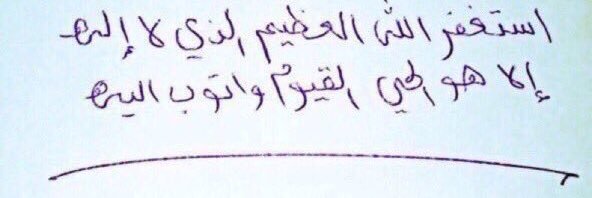 استغفر الله العظيم الذي لا إله
إلا هو الحي القيوم واتوب اليه